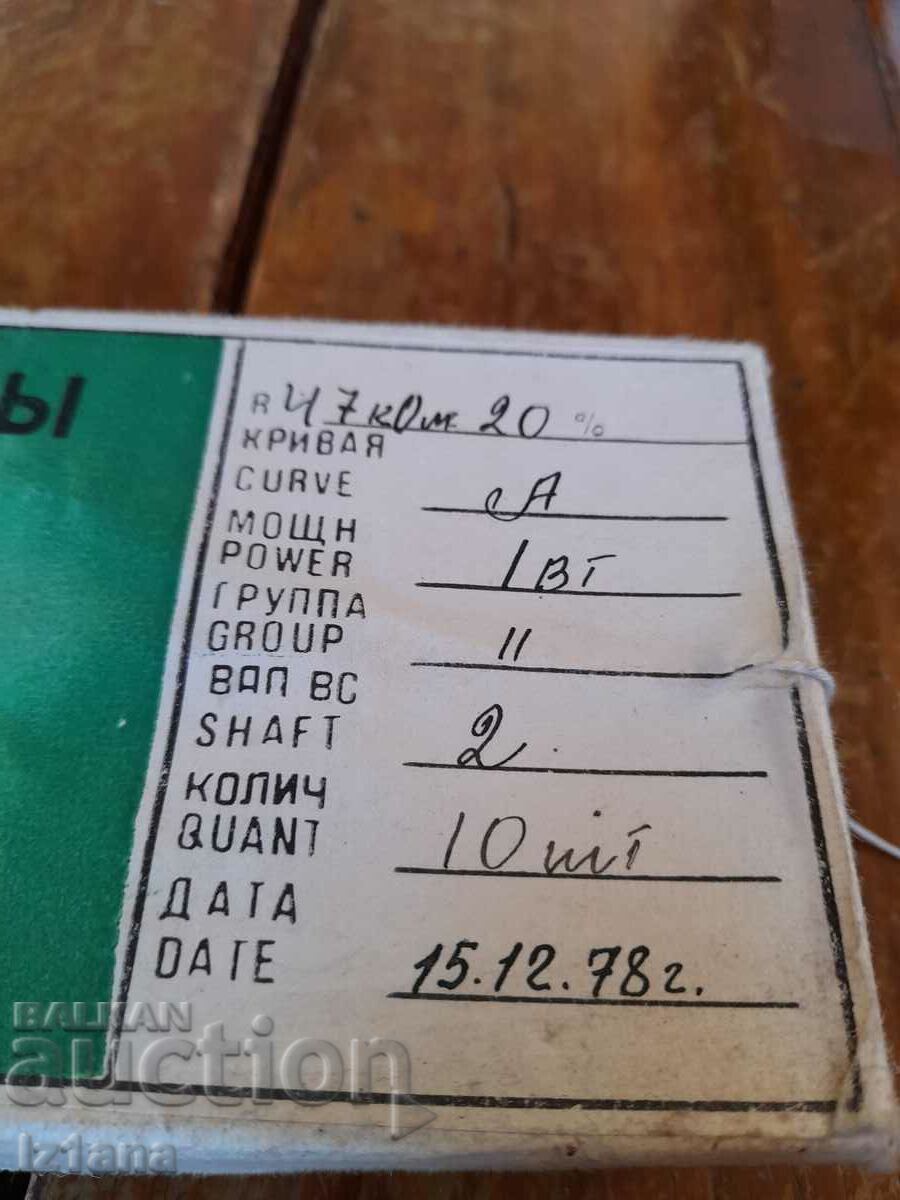 Ы
R 47кОм 20 %
КРИВАЯ
CURVE А
МОЩН
POWER 1 ВТ
ГРУППА
GROUP II
ВАЛ ВС
SHAFT 2
КОЛИЧ
QUANT 10 шт
ДАТА
DATE 15.12.78г.
BALKAN
auction
iz1ana